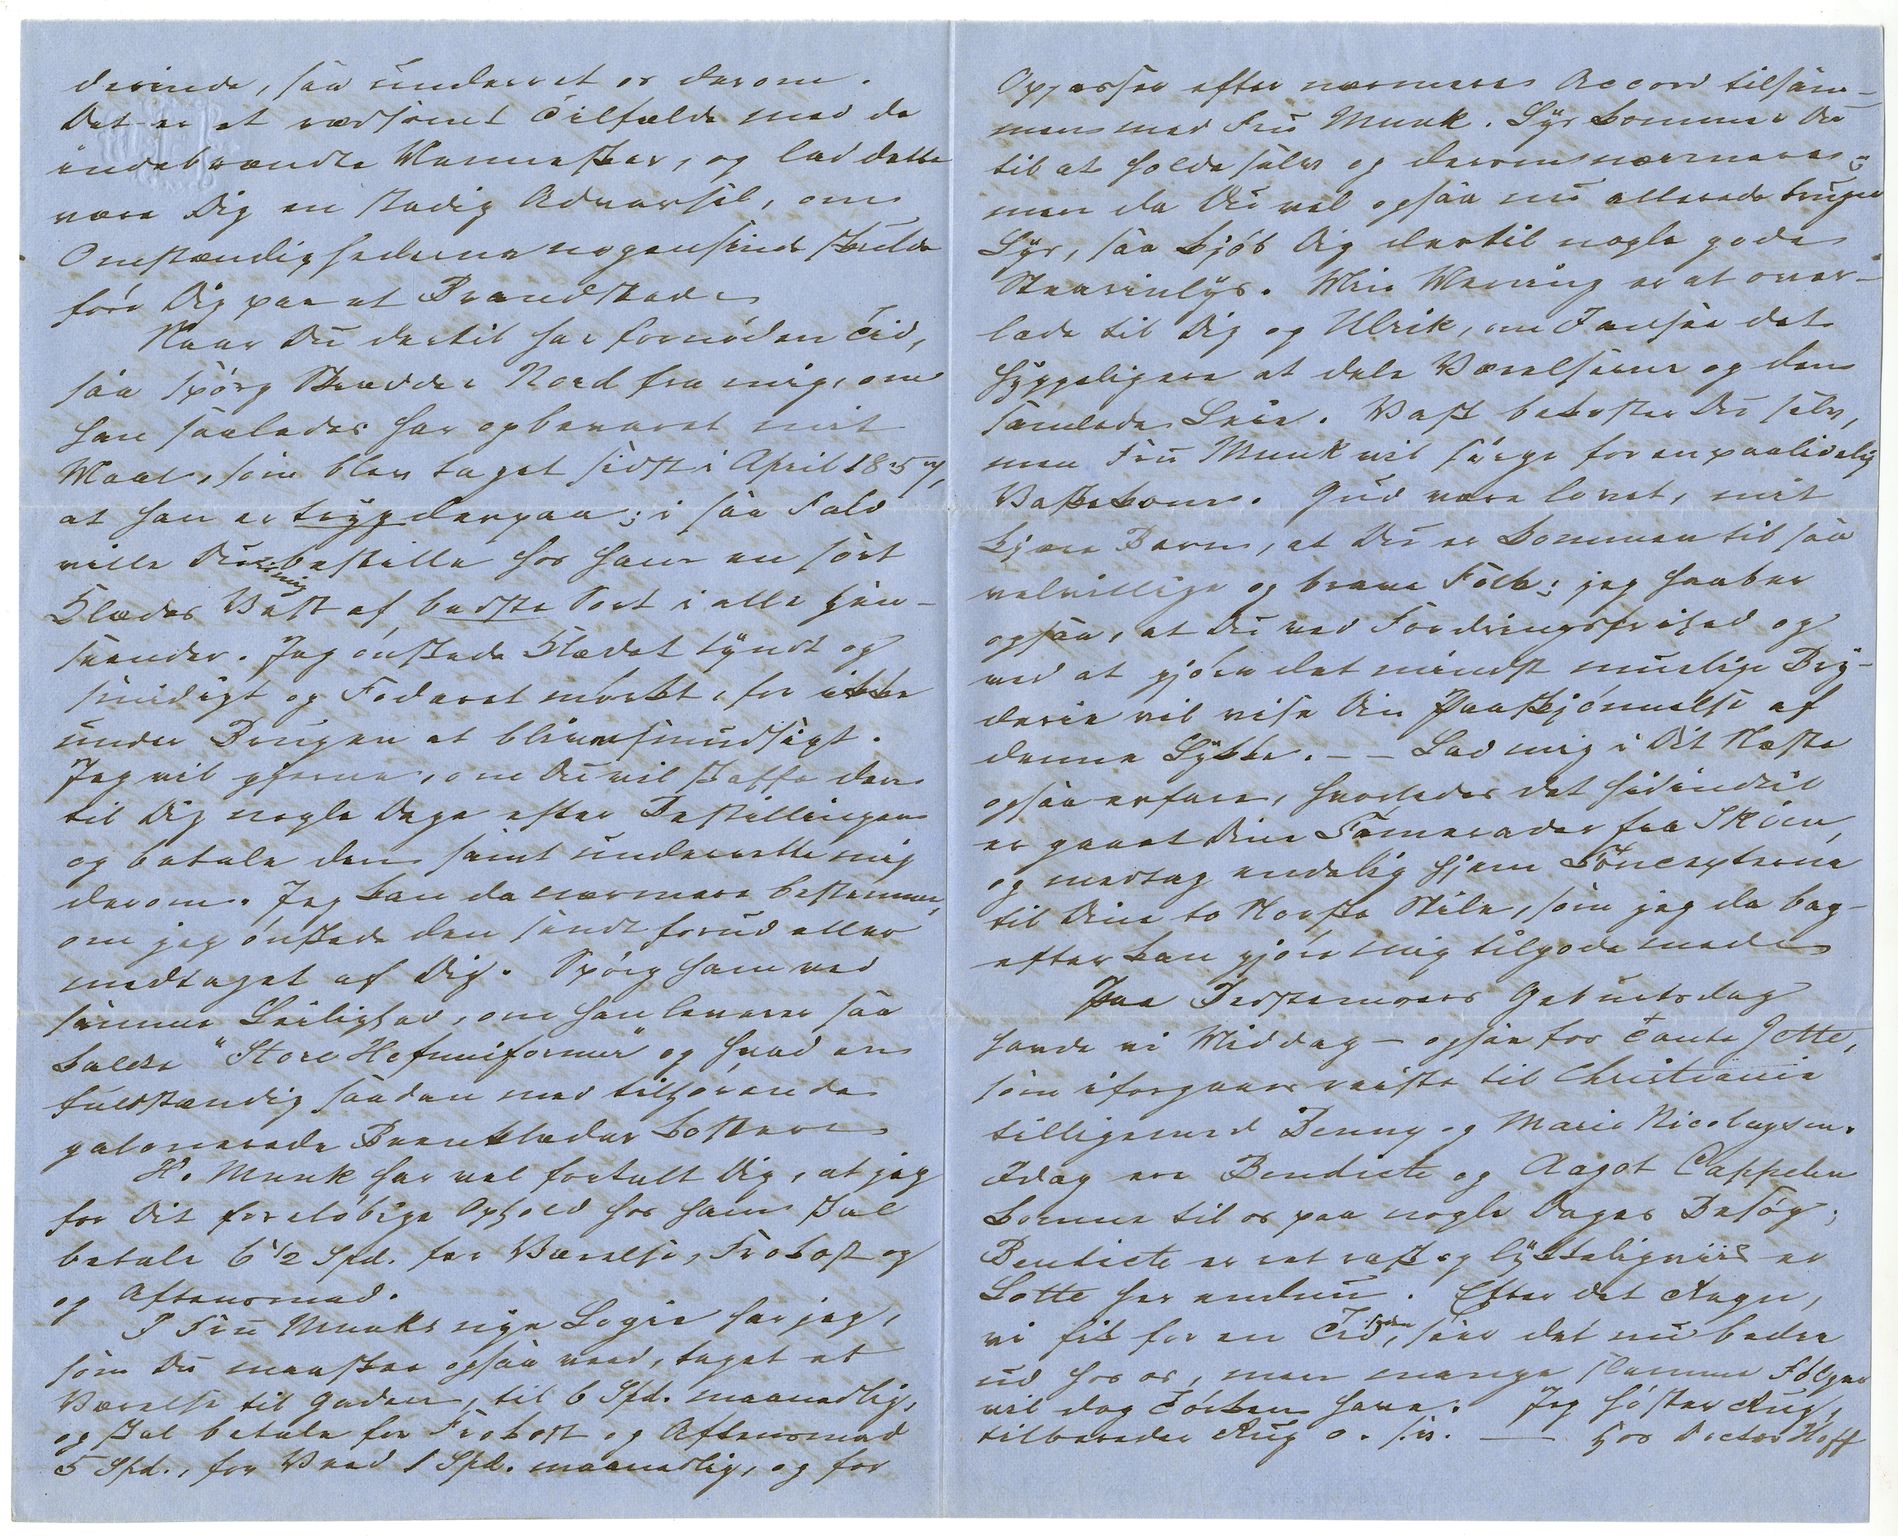 derinde, saa underret os derom.
Det er et rædsomt Tilfælde med de
indebrændte Mennesker, og lad dette
være Dig en stadig Advarsel, om
Omstændighederne nogensinde skulde
føre Dig paa et Brandsted.
Naar Du dertil har fornøden Tid,
saa spørg Skrædder Nord fra mig, om
han saaledes har opbevaret mit
Maal, som blev taget sidst i April 1857,
at han er tryg derpaa; i saa Fald
ville Du mig bestille hos ham en sort
Klædes Vest af bedste Sort i alle Hen-
seender. Jeg ønskede Klædet tyndt og
smidigt og Foderet mørkt, for ikke
under Brugen at blive smudsigt.
Jeg vil gjerne, om Du vil skaffe den
til Dig nogle Dage efter Bestillingen
og betale den samt underrette mig
derom. Jeg kan da nærmere bestemme,
om jeg ønskede den sendt forud eller
medtaget af Dig. Spørg ham ved
samme Leilighed, om han leverer saa
kaldte "Store Hofuniformer" og hvad en
fuldstændig saadan med tilhørende
galonerede Beenklæder kosterer
H. Munk har vel fortalt Dig, at jeg
for Dit foreløbige Ophold hos ham skal
betale 6 1/2 Spd. for Værelse, Frokost og
og Aftensmad.
I Fru Munks nye Logie har jeg,
som Du maaskee ogsaa veed, taget et
Værelse til Gaden, til 6 Spd. maanedlig,
og skal betale for Frokost og Aftensmad
5 Spd., for Veed 1 Spd. maanedlig, og for
Oppasser efter nærmere Accord tilsam-
men med Fru Munk. Lys kommer Du
til at holde selv og derom nærmere;
men da Du vel ogsaa nu allerede bruger
Lys, saa kjøb Dig dertil nogle gode
Stearinlys. Min Mening er at over-
lade til Dig og Ulrik, om I ansee det
hyggeligere at dele Værelserne og den
samlede Leie. Vask bekoster Du selv,
men Fru Munk vil sørge for en paalidelig
Vaskekone. Gud være lovet, mit
kjære Barn, at Du er kommen til saa
velvillige og brave Folk; jeg haaber
ogsaa, at Du ved Fordringsfrihed og
ved at gjøre det mindst muelige Bry-
derie vil vise Din Paaskjønnelse af
denne Lykke. – – Lad mig i Dit Næste
ogsaa erfare, hvorledes det hidindtil
er gaaet Dine Kamerader fra Skien,
og medtag endelig hjem Koncepterne
til Dine to Norske Stile, som jeg da bag-
efter kan gjøre mig tilgode med.
Paa Bestemoers Geburtsdag
havde vi Middag – ogsaa for Tante Jette,
som iforgaars reiste til Christiania
tilligemed Benny og Marie Nicolaysen.
Idag ere Bendicte og Aagot Cappelen
komne til os paa nogle Dages Besøg;
Bendicte er ret rask og lykkeligviis er
Lotte her endnu. Efter det Regn,
vi fik for en Tid siden, seer det nu bedre
ud hos os, men mange slemme Følger
vil dog Tørken have. Jeg høster Rug,
tilbereder Rug o. s.v. —— Hos Doctor Hoff